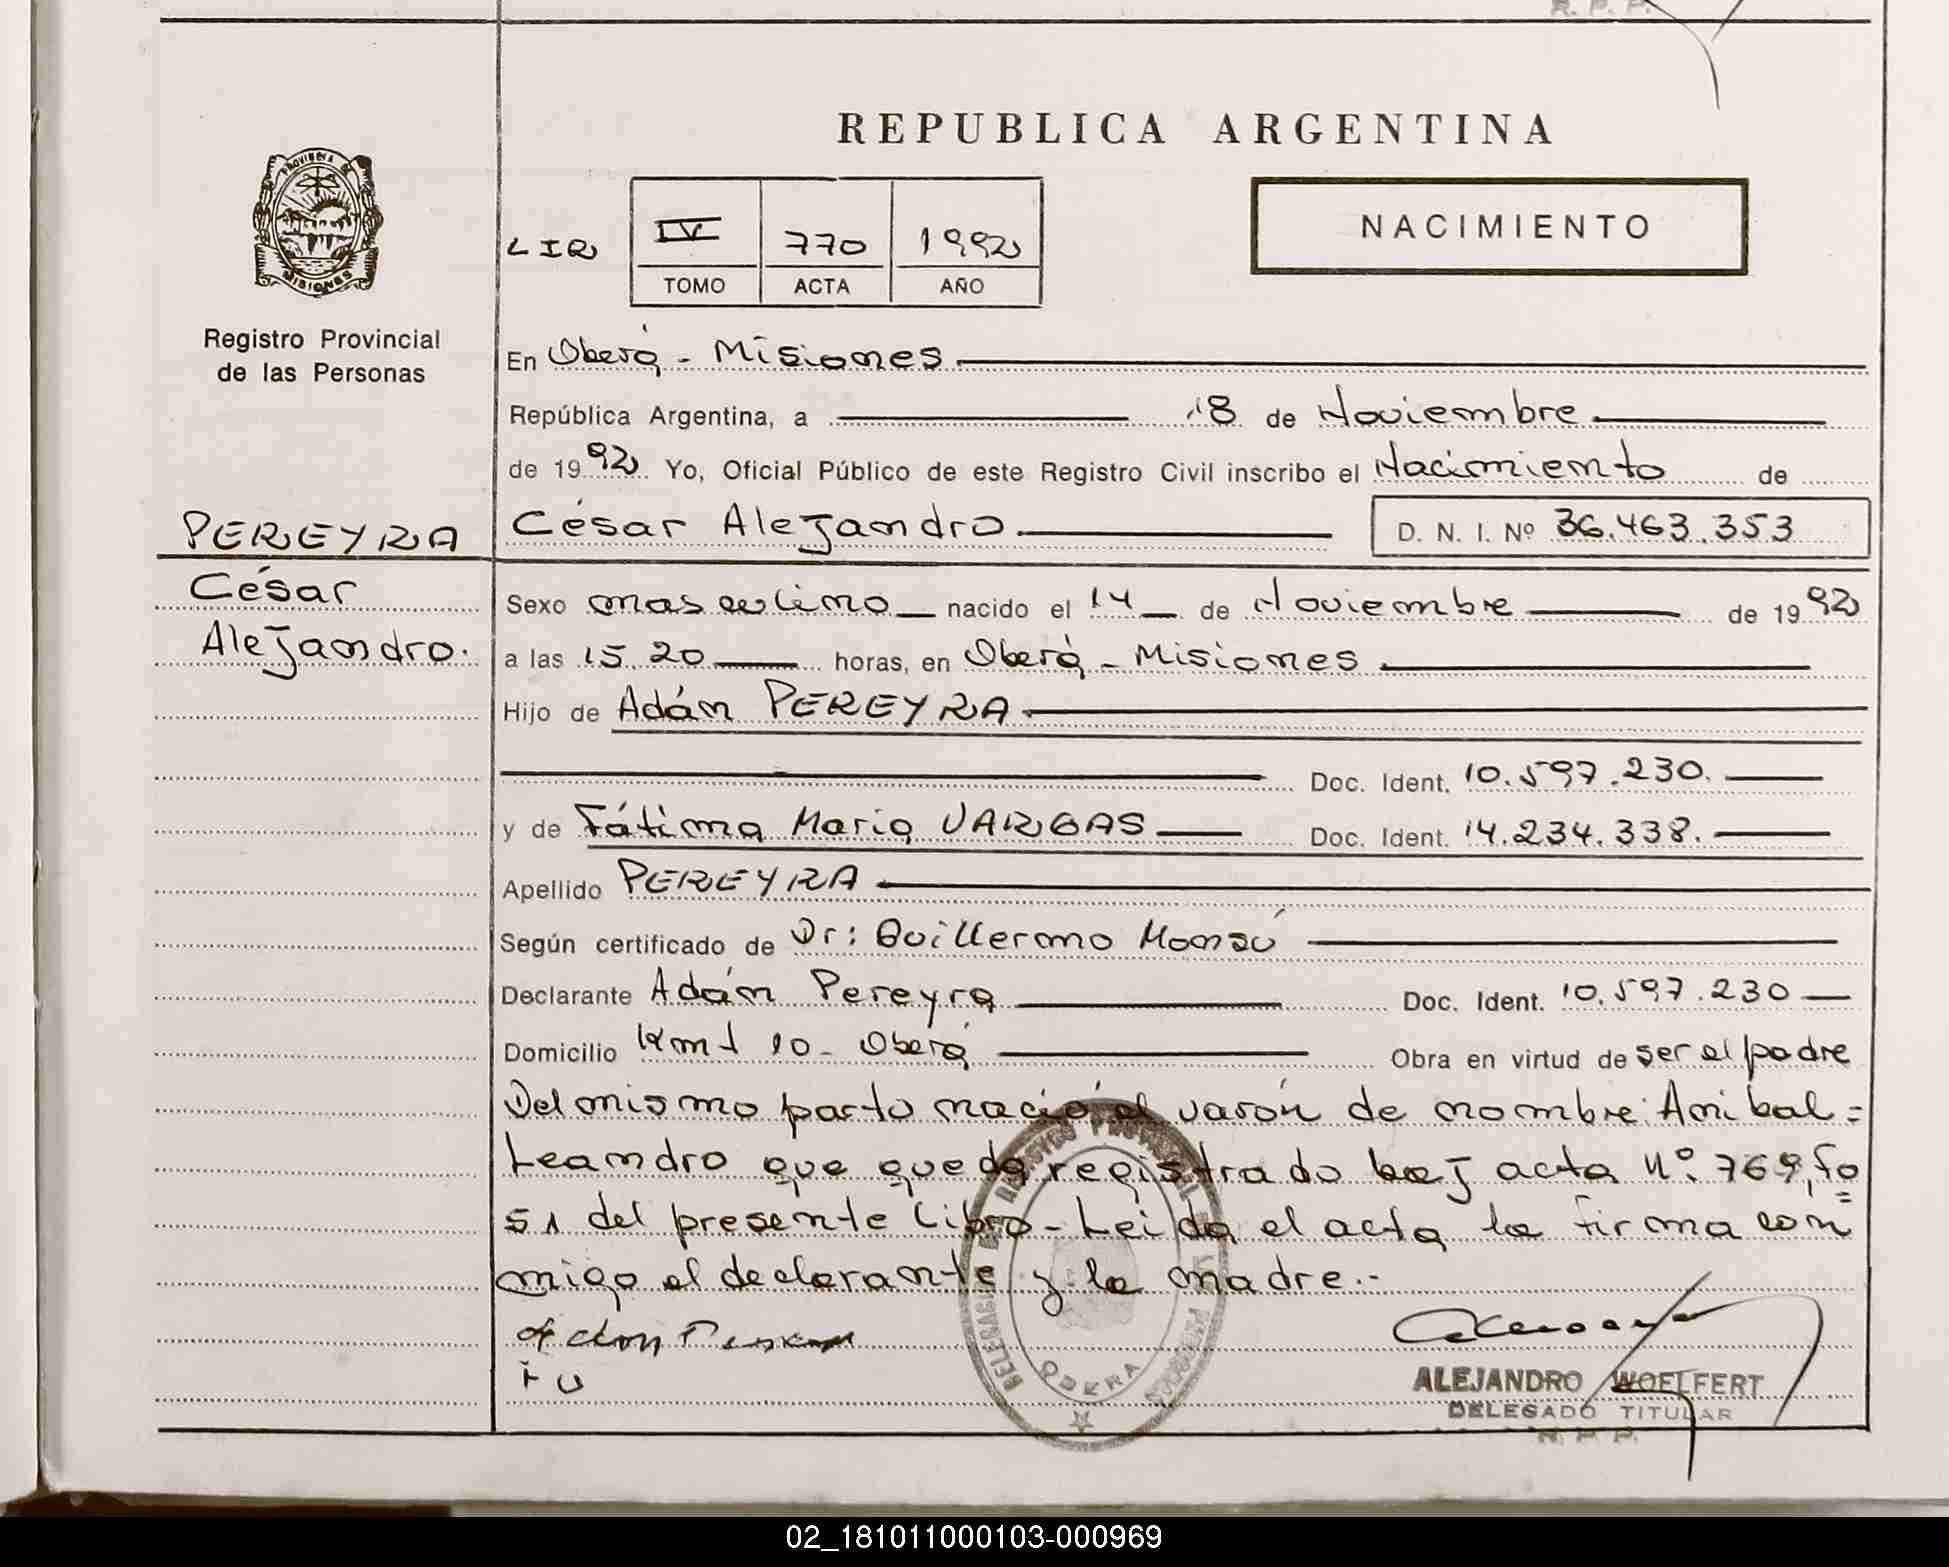 R. P. P.
REPUBLICA ARGENTINA
PROVINCIA DE
MISIONES
NACIMIENTO
LIR IV 770 1992
TOMO ACTA AÑO
Registro Provincial
de las Personas
En Oberá - Misiones
República Argentina, a 18 de Noviembre
de 1992 Yo, Oficial Público de este Registro Civil inscribo el Nacimiento de
PEREYRA César Alejandro D. N. I. Nº 36.463.353
César
Alejandro.
Sexo masculino nacido el 14 de Noviembre de 1992
a las 15 20 horas, en Oberá - Misiones
Hijo de Adán PEREYRA
Doc. Ident. 10.597.230.
y de Fátima Maria VARGAS Doc. Ident. 14.234.338.
Apellido PEREYRA
Según certificado de Dr: Guillermo Monsú
Declarante Adán Pereyra Doc. Ident. 10.597.230
Domicilio Kmt 10 - Oberá Obra en virtud de ser el padre
Del mismo parto nació el varón de nombre: Anibal =
Leandro que queda registrado baj acta Nº 769, fo
51 del presente Libro - Leida el acta la firma con
migo el declarante y la madre.-
OBERA
ALEJANDRO WOELFERT
DELEGADO TITULAR
R. P. P.
02_181011000103-000969